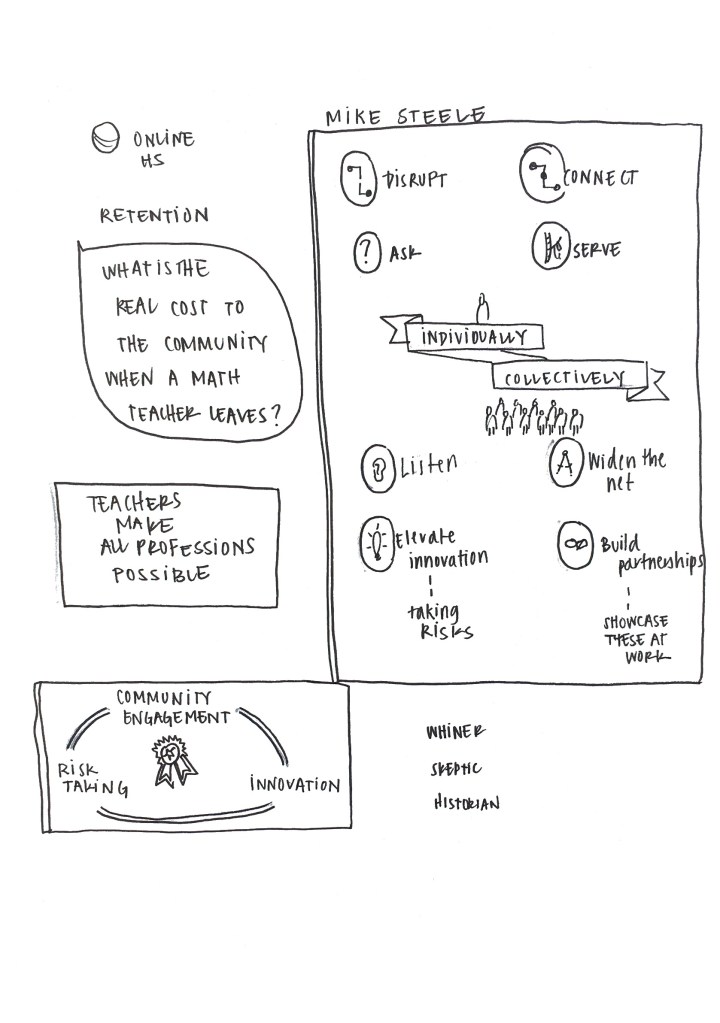 MIKE STEELE
ONLINE
HS
RETENTION
WHAT IS THE
REAL COST TO
THE COMMUNITY
WHEN A MATH
TEACHER LEAVES?
TEACHERS
MAKE
ALL PROFESSIONS
POSSIBLE
COMMUNITY
ENGAGEMENT
RISK
TAKING
INNOVATION
DISRUPT
CONNECT
?
ASK
SERVE
INDIVIDUALLY
COLLECTIVELY
Listen
Widen the
net
Elevate
innovation
taking
RISKS
Build
partnerships
SHOWCASE
THESE AT
WORK
WHINER
SKEPTIC
HISTORIAN